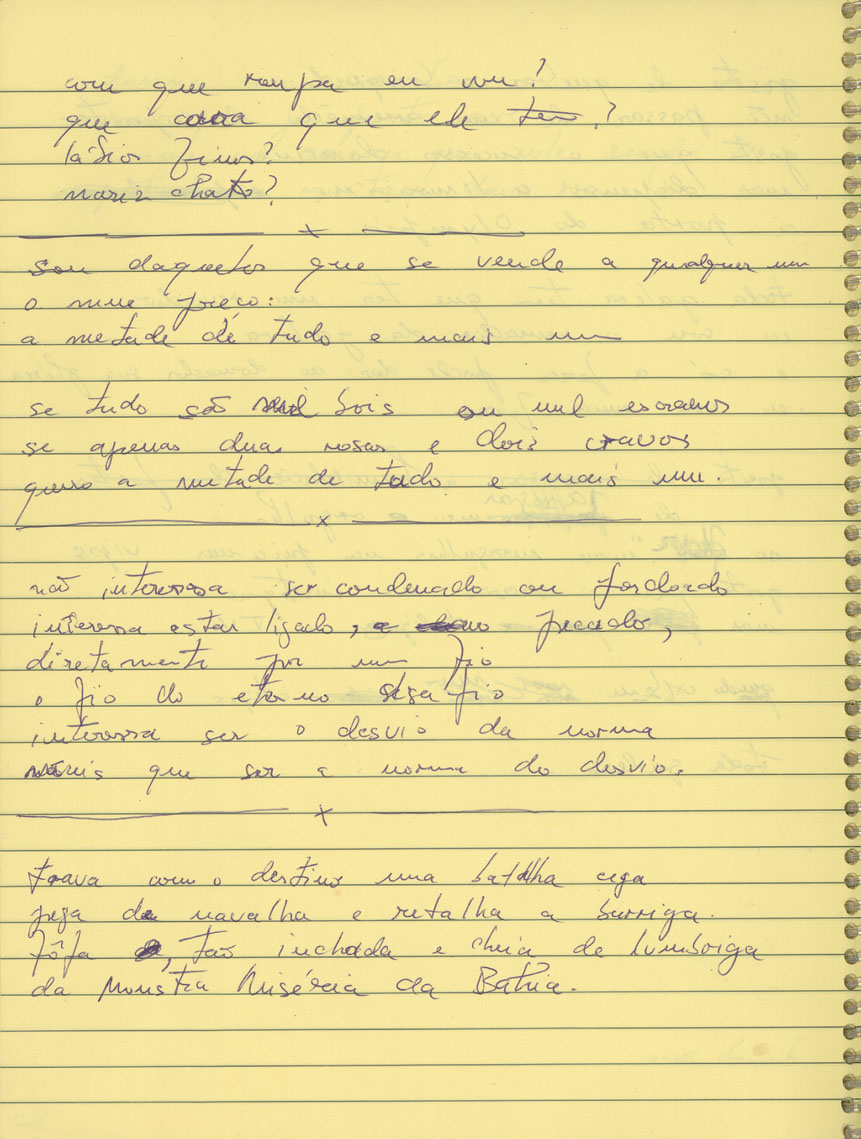 com que roupa eu vou?
que cara que ele tem?
lábios finos?
nariz chato?
x
sou daqueles que se vende a qualquer um
o meu preço:
a metade de tudo e mais um
se tudo são mil bois ou mil escravos
se apenas duas rosas e dois cravos
quero a metade de tudo e mais um.
x
não interessa ser condenado ou perdoado
interessa estar ligado, pecado,
diretamente por um fio
o fio do eterno desafio
interessa ser o desvio da norma
mais que ser a norma do desvio.
x
trava com o destino uma batalha cega
pega da navalha e retalha a barriga
fôfa, tão inchada e cheia de lumbriga
da Monstra Miséria da Bahia.